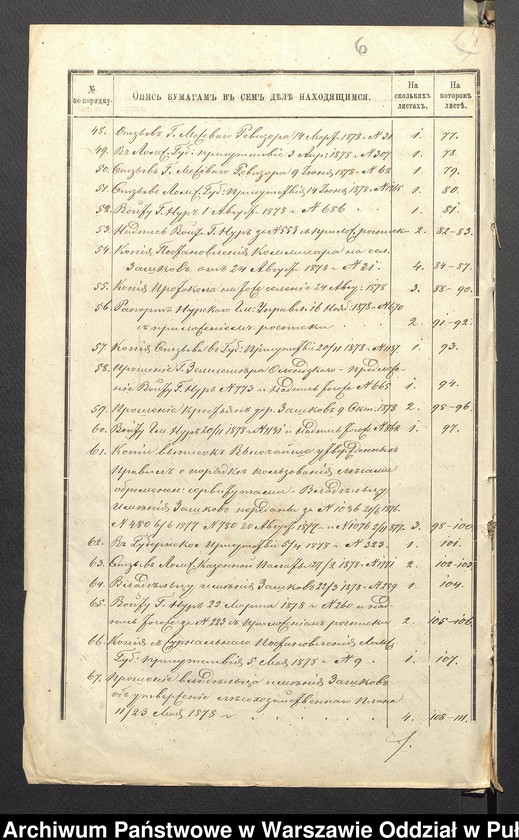 6
№ по порядку.
Опись бумагамъ въ семъ дѣлѣ находящимся.
На сколькихъ листахъ.
На которомъ листѣ.
48. Отзывъ Г. Межеваго Ревизора 14 Март. 1878 г. № 31 1. 77.
49. Въ Ломж. Губ: Присутствіе 3 Апр: 1878 г. № 307. 1. 78.
50. Отзывъ Г. Межеваго Ревизора 9 Іюня 1878 г. № 62. 1. 79.
51. Отзывъ Ломж. Губ: Присутствія 14 Іюня 1878 г. № 1165 1. 80.
52. Войту Г. Нуръ 1 Августа 1878 г. № 686 1. 81.
53. Надпись Войт. Г. Нуръ за № 553 съ прилож. росписки 2. 82-83.
54. Копія Постановленія Коммисара на сел.
Зашковъ, отъ 24 Август. 1878 г. № 21. 4. 84-87.
55. Копія Протокола на тоже селеніе 24 Авгу: 1878 3. 88-90.
56. Рапортъ Нурскаго Гм: Управл. 16 Нояб: 1878 г. № 670
съ приложеніемъ росписки 2. 91-92.
57. Копія Отзыва въ Губ: Присутствіе 20/11 1878 г. № 1187. 1. 93.
58. Прошеніе Г. Землемѣра
Войту Г. Нуръ № 773 и надпись тогоже № 665 1. 94.
59. Прошеніе Крестьянъ дер. Зашковъ 9 Окт: 1878 2. 95-96.
60. Войту Гм Нуръ 20/11 1878 г. № 1131 и надпись тогоже № 862 1. 97.
61. Копіи выписокъ Высочайше утвержденныхъ
Правилъ о порядкѣ пользованія лѣсами
обремѣнен: сервитутами. Владѣльцу
имѣнія Зашковъ переданы за № 1036 21/6 1876.
№ 480 6/6 1877 № 780 20 Август. 1877 г. и № 1076 2/11 877. 3. 98-100
62. Въ Губернское Присутствіе 5/4 1878 г. № 323. 1. 101.
63. Отзывъ Ломж. Казенной Палаты 27/2 1878 г. № 1781 2. 102-103
64. Владѣльцу имѣнія Зашковъ 22/3 1878 г. № 259 1. 104.
65. Войту Г. Нуръ 22 Марта 1878 г. № 260 и над-
пись тогоже за № 223 съ приложеніемъ росписки 2. 105-106.
66. Копія съ Журнальнаго Постановленія Ломж.
Губ: Присутствія 5 Мая 1878 г. № 9. 1. 107.
67. Прошеніе владѣльца имѣнія Зашковъ
объ утвержденіе лѣсохозяйственнаго Плана
11/23 Мая 1878 г. 4. 108-111.
Archiwum Państwowe w Warszawie Oddział w Puł